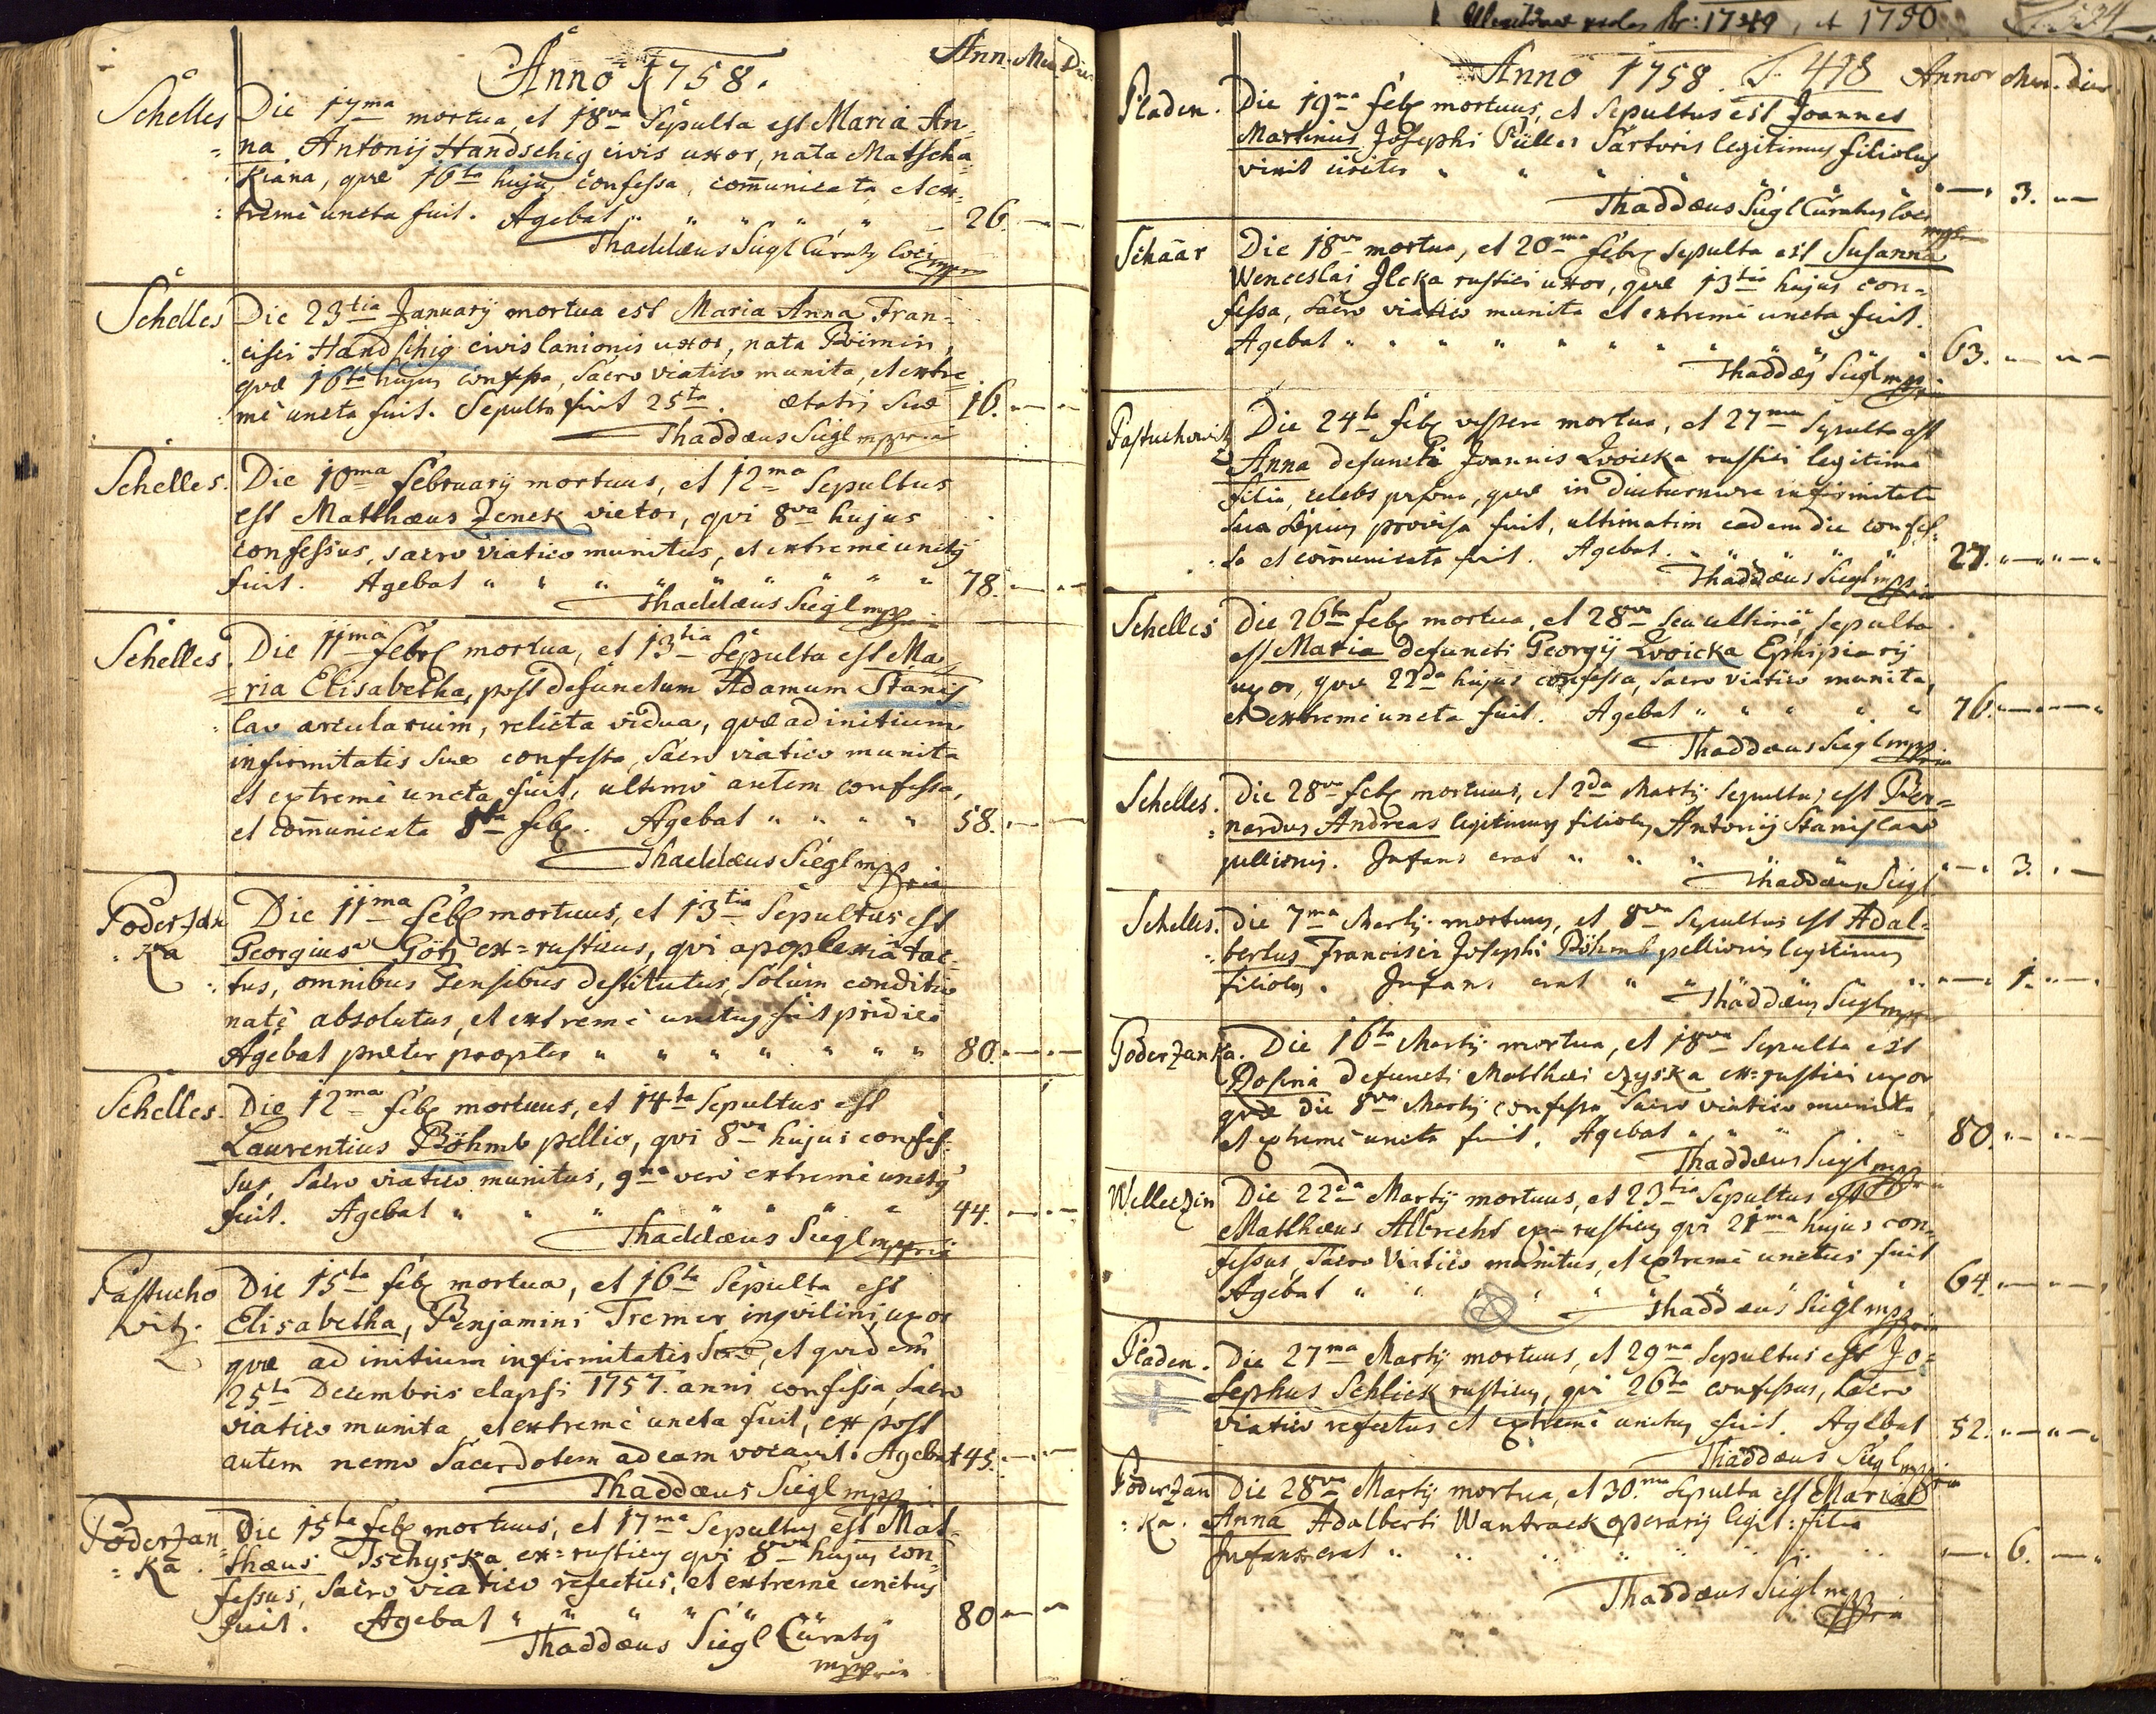 Anno 1758.
Ann. Men. Die
Schelles
Die 17ma mortua, et 18va Sepulta est Maria An=
na Antonij Handschig civis uxor, nata Matscha
Kiana, quæ 16ta hujus confessa, com̄unicata, et ex=
tremè uncta fuit. Agebat " " " " " 26. — —
Thaddæus Siegl Curatus loci mppria
Schelles
Die 23tia Januarij mortua est Maria Anna Fran=
cisci Handschig civis lanionis uxor, nata
quæ 16ta hujus confessa, Sacro viatico munita, et extre
mè uncta fuit. Sepulta fuit 25ta. ætatis suæ 16. — —
Thaddæus Siegl mppria
Schelles.
Die 10ma Februarij mortuus, et 12ma Sepultus
est Matthæus Zenek vietor, qui 8va hujus
confessus, sacro viatico munitus, et extremè unctus
fuit. Agebat " " " " " " " " 78. — —
Thaddæus Siegl mppria
Schelles.
Die 11ma Febr. mortua, et 13tia Sepulta est Ma
=ria Elisabetha, post defunctum Adamum Stanis
lav arcularium, relicta vidua, quæ ad initium
infirmitatis suæ confessa, Sacro viatico munita
et extremè uncta fuit, ultimò autem confessa,
et com̄unicata 8va feb. Agebat " " " " 58. — —
Thaddæus Siegl mppria
PoderZan
=Ka
Die 11ma feb. mortuus, et 13tia Sepultus est
Georgius Götz ex=rusticus, qui apoplexiâ tac=
tus, omnibus Sensibus destitutus, Solùm conditio
natè absolutus, et extremè unctus fuit pridie
Agebat præter propter " " " " " " " 80. — —
Schelles.
Die 12ma feb. mortuus, et 14ta Sepultus est
Laurentius Böhmb pellio, qui 8va hujus confes=
sus, Sacro viatico munitus, 9na verò extremè unctus
fuit. Agebat " " " " " " " 44. — —
Thaddæus Siegl mppria
Pastucho
witz.
Die 15ta feb. mortua, et 16ta Sepulta est
Elisabetha, Benjamini Tremer inqvilini uxor
quæ ad initium infirmitatis suæ, et quidem
25ta Decembris elapsi 1757. anni confessa, Sacro
viatico munita, et extremè uncta fuit, ex post
autem nemo Sacerdotem ad eam vocavit. Agebat 45. — —
Thaddæus Siegl mpp.
PoderZan
=Ka.
Die 15ta feb. mortuus, et 17ma Sepultus est Mat=
thæus Tschyska ex=rusticus qui 8va hujus con=
fessus, Sacro viatico refectus, et extremè unctus
fuit. Agebat " " " " " 80 — —
Thaddæus Siegl Curatus
mppria
1749, et 1750
Anno 1758. 418 Annor. Men. Dier.
Pladen.
Die 19na feb. mortuus, et Sepultus est Joannes
Martinus Josephi Püller Sartoris legitimus filiolus
vixit circiter " " " " " — 3. —
Thaddæus Siegl Curatus loci
mppria
Schaar
Die 18va mortua, et 20ma Febr. Sepulta est Susanna
Wenceslai Jlcka rustici uxor, quæ 13tia hujus con=
fessa, Sacro viatico munita et extremè uncta fuit.
Agebat " " " " " " " " " " 63. — —
Thaddæus Siegl mppria
Pastuchowitz
Die 24ta feb. vespere mortua, et 27ma Sepulta est
Anna defuncti Joannis Zwoicka rustici legitima
filia, celebs persona, quæ in diuturniore infirmitate
sua Sæpius provisa fuit, ultimatim eadem die confes=
sa et com̄unicata fuit. Agebat. " " " " 27. — —
Thaddæus Siegl mppria
Schelles
Die 26ta feb. mortua, et 28va seu ultima, sepulta
est Maria defuncti Georgij Zwoicka Ephipiarij
uxor, quæ 22da hujus confessa, Sacro viatico munita,
et extremè uncta fuit. Agebat " " " " " 76. — —
Thaddæus Siegl mppria
Schelles.
Die 28va feb. mortuus, et 2da Martij sepultus est Ber=
=nardus Andreas legitimus filiolus Antonij Stanislaw
pellionis. Infans erat " " " " — 3. —
Thaddæus Siegl
Schelles.
Die 7ma Martij mortuus, et 8va Sepultus est Adal=
=bertus Francisci Josephi Böhmb pellionis legitimus
filiolus. Infans erat " " " " — 1. —
Thaddæus Siegl mppria
PoderZanKa.
Die 16ta Martij mortua, et 18va Sepulta est
Rosina defuncti Matthæi Czyska ex=rustici uxor
quæ die 8va Martij confessa Sacro viatico munita
et extremè uncta fuit. Agebat " " " 80. — —
Thaddæus Siegl mppria
Welleczin
Die 22da Martij mortuus, et 23tia Sepultus est
Matthæus Albrecht ex=rusticus qui 21ma hujus con=
fessus, Sacro Viatico munitus, et extremè unctus fuit
Agebat " " " " " " " " 64. — —
Thaddæus Siegl mppria
Pladen.
Die 27ma Martij mortuus, et 29na Sepultus est Jo=
sephus Schlick rusticus, qui 26ta confessus, Sacro
viatico refectus et extremè unctus fuit. Agebat 52. — —
Thaddæus Siegl mppria
PoderZan
=Ka.
Die 28va Martij mortua, et 30.ma Sepulta est Maria
Anna Adalberti Wantraek operarij legit: filia
Infans erat " " " " " " — 6. —
Thaddæus Siegl mppria